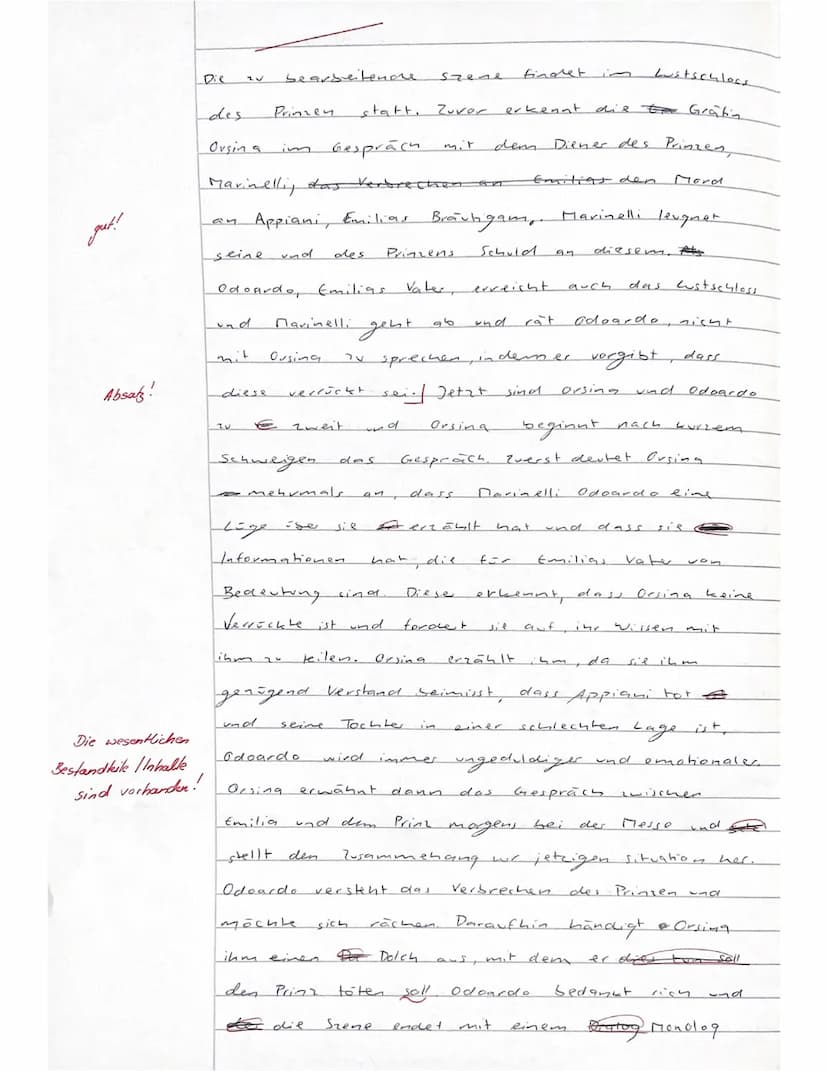 Die zu bearbeitende Szene findet im Lustschloss
des Prinzen statt. Zuvor erkennt die Gräfin
Orsina im Gespräch mit dem Diener des Prinzen,
Marinelli, das Verbrechen an Emilias den Mord
gut!
an Appiani, Emilias Bräutigam. Marinelli leugnet
seine und des Prinzens Schuld an diesem.
Odoardo, Emilias Vater, erreicht auch das Lustschloss
und Marinelli geht ab und rät Odoardo, nicht
mit Orsina zu sprechen, indem er vorgibt, dass
Absatz!
diese verrückt sei. Jetzt sind Orsina und Odoardo
zu zweit und Orsina beginnt nach kurzem
Schweigen das Gespräch. Zuerst deutet Orsina
mehrmals an, dass Marinelli Odoardo eine
Lüge über sie erzählt hat und dass sie
Informationen hat, die für Emilias Vater von
Bedeutung sind. Diese erkennt, dass Orsina keine
Verrückte ist und fordert sie auf, ihr Wissen mit
ihm zu teilen. Orsina erzählt ihm, da sie ihm
genügend Verstand beimisst, dass Appiani tot
und seine Tochter in einer schlechten Lage ist.
Die wesentlichen
Bestandteile / Inhalte
sind vorhanden!
Odoardo wird immer ungeduldiger und emotionaler.
Orsina erwähnt dann das Gespräch zwischen
Emilia und dem Prinz morgens bei der Messe und
stellt den Zusammehang zur jetzigen Situation her.
Odoardo versteht das Verbrechen des Prinzen und
möchte sich rächen. Daraufhin händigt Orsina
ihm einen Dolch aus, mit dem er dies tun soll
den Prinz töten soll. Odoardo bedankt sich und
die Szene endet mit einem Dialog Monolog